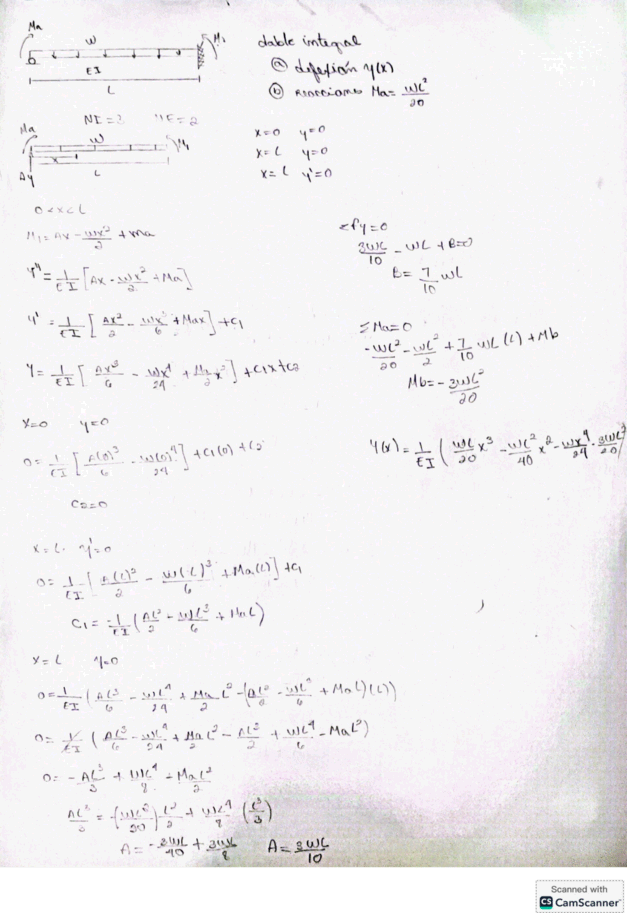 Ma
w
M1
EI
L
doble integral
(a) deflexión y(x)
(b) reacciones Ma = wL²/20
NI=3
Ma
w
M1
Ay
x
L
x=0 y=0
x=L y=0
x=L y'=0
0<x<L
M1 = Ax - wx²/2 + Ma
y'' = 1/EI [Ax - wx²/2 + Ma]
y' = 1/EI [Ax²/2 - wx³/6 + Max] + C1
y = 1/EI [Ax³/6 - wx⁴/24 + Ma/2 x²] + C1x + C2
x=0 y=0
0 = 1/EI [A(0)³/6 - w(0)⁴/24] + C1(0) + C2
C2=0
x=L y'=0
0 = 1/EI [A(L)²/2 - w(L)³/6 + Ma(L)] + C1
C1 = -1/EI (AL²/2 - wL³/6 + MaL)
x=L y=0
0 = 1/EI (AL³/6 - wL⁴/24 + Ma/2 L² - (AL²/2 - wL³/6 + MaL)(L))
0 = 1/EI (AL³/6 - wL⁴/24 + Ma/2 L² - AL³/2 + wL⁴/6 - MaL²)
0 = -AL³/3 + wL⁴/8 - MaL²/2
AL³/3 = -(wL²/20) L²/2 + wL⁴/8 (L³/3)
A = -3wL/40 + 3wL/8 A = 3wL/10
ΣFy=0
3wL/10 - wL + B=0
B = 7/10 wL
ΣMa=0
-wL²/20 - wL²/2 + 7/10 wL(L) + Mb
Mb = -3wL²/20
y(x) = 1/EI (wL/20 x³ - wL²/40 x² - wx⁴/24 · 3wL²/20)
Scanned with
CS CamScanner